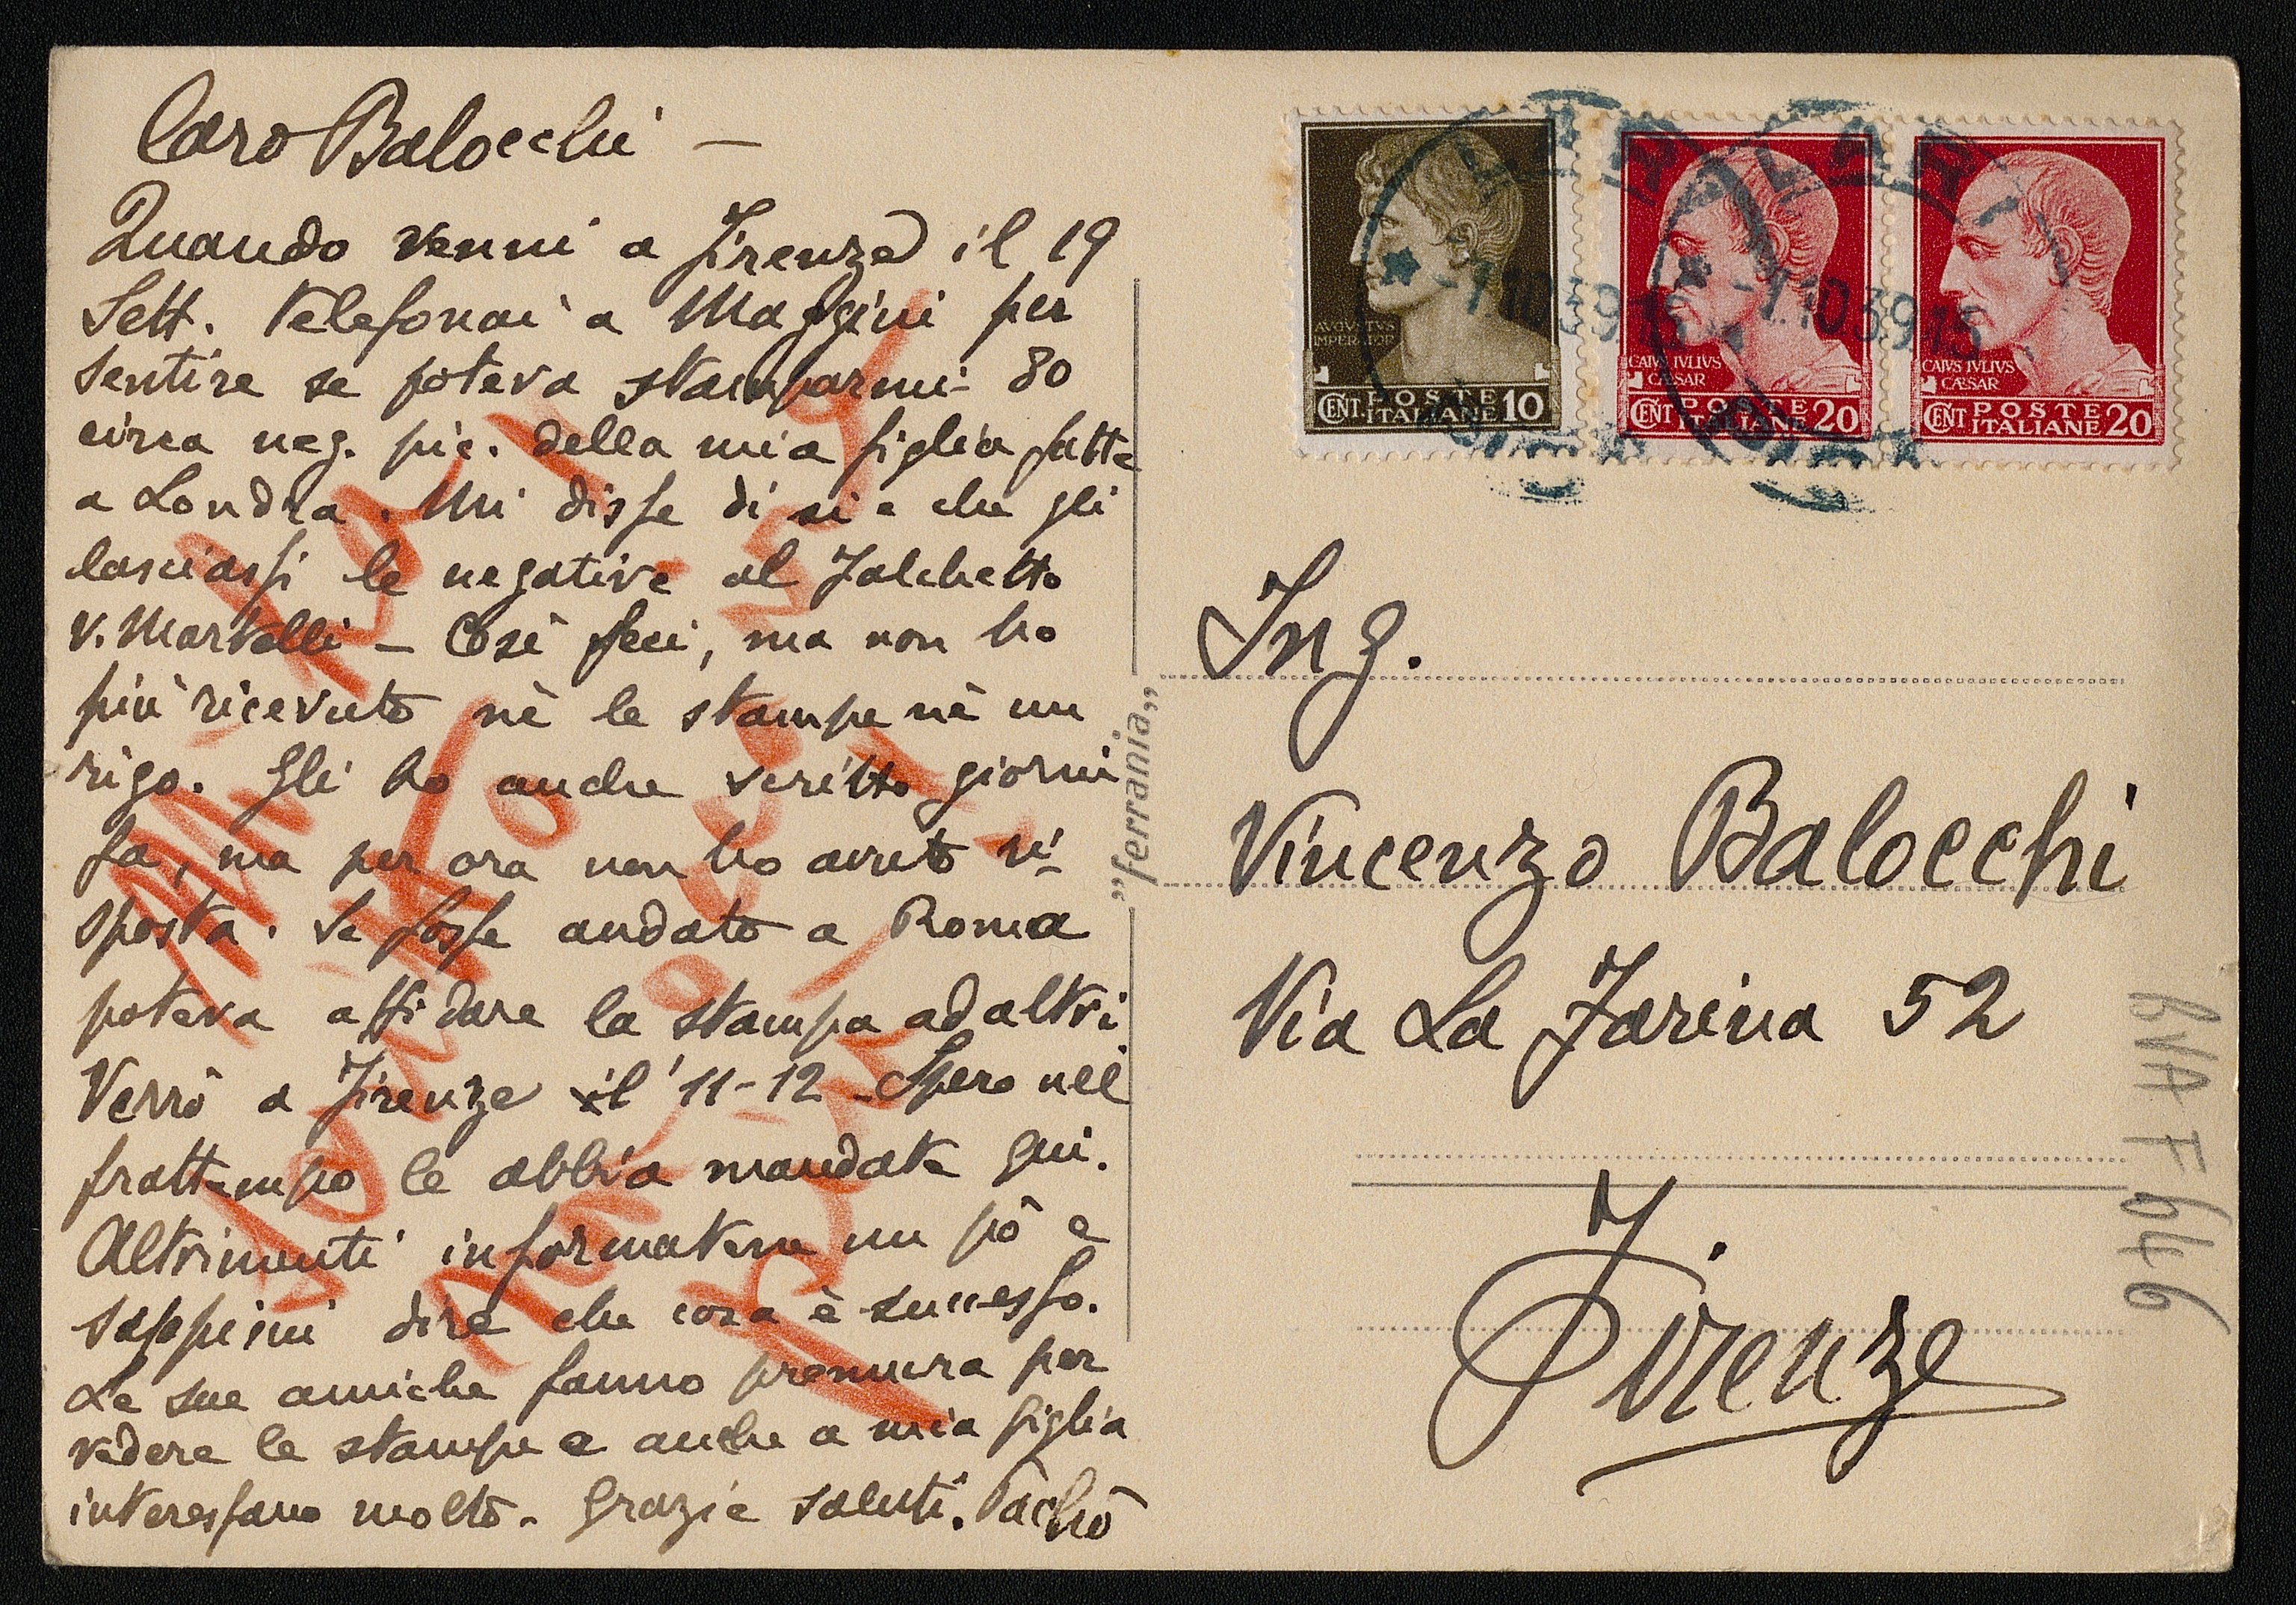 Caro Balocchi —
Quando venni a Firenze il 19
Sett. telefonai a Maggini per
sentire se poteva stamparmi 80
circa neg. pic. della mia figlia fatte
a Londra. Mi disse di si e che gli
lasciassi le negative al Falchetto
V. Martelli — Così feci, ma non ho
più ricevuto nè le stampe nè un
rigo. Gli ho anche scritto giorni
fa, ma per ora non ho avuto ri-
sposta. Se fosse andato a Roma
poteva affidare la stampa ad altri
Verrò a Firenze il 11-12 - Spero nel
frattempo le abbia mandate qui.
Altrimenti informatene un pò e
sappimi dire che cosa è successo.
Le sue amiche fanno premura per
vedere le stampe e anche a mia figlia
interessano molto. Grazie saluti.
"ferrania"
AVGVSTVS
IMPERATOR
CENT. POSTE ITALIANE 10
CAIVS IVLIVS
CÆSAR
CENT POSTE ITALIANE 20
CAIVS IVLIVS
CÆSAR
CENT POSTE ITALIANE 20
LARI
-1.10.39.15
LARI
-1.10.39.15
Ing.
Vincenzo Balocchi
Via La Farina 52
Firenze
BVA F 646